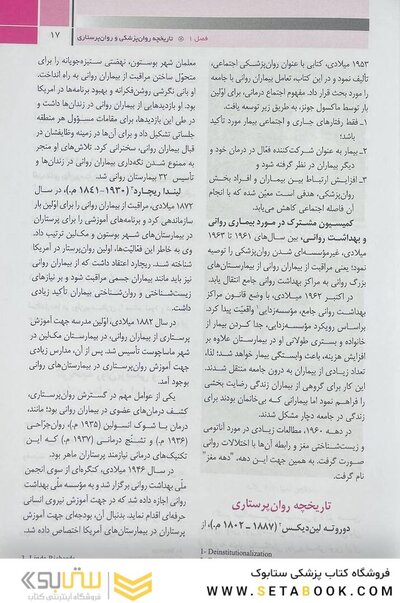 فصل ۱ تاریخچه روان‌پزشکی و روان‌پرستاری ۱۷
۱۹۵۳ میلادی، کتابی با عنوان روان‌پزشکی اجتماعی،
تألیف نمود و در این کتاب، تعامل بیماران روانی با جامعه
را مورد بحث قرار داد. مفهوم اجتماع درمانی، برای اوّلین
بار توسط ماکسول جونز، به طریق زیر توسعه یافت.
۱ـ فقط رفتارهای جاری و اجتماعی بیمار مورد تأکید
باشد؛
۲ـ بیمار به عنوان شرکت‌کننده فعّال در درمان خود و
دیگر بیماران در نظر گرفته شود و
۳ـ افزایش ارتباط بین بیماران و افراد بخش
روان‌پزشکی، هدفی است معیّن شده که با انجام
آن فاصله اجتماعی کاهش می‌یابد.
کمیسیون مشترک در مورد بیماری روانی
و بهداشت روانی، بین سال‌های ۱۹۶۱ تا ۱۹۶۳
میلادی، غیرمؤسسه‌ای شدن روان‌پزشکی را توصیه
نمود؛ یعنی مراقبت از بیماران روانی از بیمارستان‌های
بزرگ روانی به مراکز بهداشت روانی جامع انتقال یابد.
در اکتبر ۱۹۶۲ میلادی، با وضع قانون مراکز
بهداشت روانی جامع، مؤسسه‌زدایی¹ واقعیّت پیدا کرد.
براساس رویکرد مؤسسه‌زدایی، جدا کردن بیمار از
خانواده و بستری طولانی او در بیمارستان علاوه بر
افزایش هزینه، باعث وابستگی بیمار خواهد شد؛ لذا،
تعداد زیادی از بیماران به درون جامعه منتقل شدند.
این کار برای گروهی از بیماران زندگی رضایت بخشی
را فراهم نمود اما بیمارانی که بی‌خانمان بودند برای
زندگی در جامعه دچار مشکل شدند.
در دهه ۱۹۶۰، مطالعات زیادی در مورد آناتومی
و زیست‌شناختی مغز و رابطه آن‌ها با اختلالات روانی
صورت گرفت. به همین جهت این دهه، "دهه مغز"
نام گرفت.
تاریخچه روان‌پرستاری
دوروته لین‌دیکس (۱۸۸۷ ـ ۱۸۰۲ م.)، از
1- Deinstitutionalization
معلمان شهر بوستون، نهضتی ستیزه‌جویانه را برای
متحوّل ساختن مراقبت از بیماران روانی به راه انداخت.
او بانی نگرشی روشن‌فکرانه و بهبود برنامه‌ها در آمریکا
بود. او بازدیدهایی از بیماران روانی در زندان‌ها داشت و
در طی این بازدیدها، برای مقامات مسؤول هر منطقه
جلساتی تشکیل داد و برای آن‌ها در زمینه وظایفشان در
قبال بیماران روانی، سخنرانی کرد. تلاش‌های او منجر
به ممنوع شدن نگه‌داری بیماران روانی در زندان‌ها و
تأسیس ۳۲ بیمارستان روانی شد.
لیندا ریچارد (۱۹۳۰–۱۸۴۱ م.)، در سال
۱۸۷۲ میلادی، مراقبت از بیماران روانی را برای اوّلین بار
سازمان‌دهی کرد و برنامه‌های آموزشی را برای پرستاران
در بیمارستان‌های شهر بوستون و مک‌لین ترتیب داد.
وی به خاطر این فعّالیّت‌ها، اولین روان‌پرستار در آمریکا
شناخته شد. ریچارد اعتقاد داشت که از بیماران روانی
نیز باید مانند بیماران جسمی مراقبت شود و بر نیازهای
زیست‌شناختی و روان‌شناختی بیماران تأکید زیادی
داشت.
در سال ۱۸۸۲ میلادی، اوّلین مدرسه جهت آموزش
پرستاری از بیماران روانی، در بیمارستان مک‌لین در
شهر ماساچوست تأسیس شد. پس از آن، مدارس زیادی
جهت آموزش روان‌پرستاری در بیمارستان‌های روانی
بوجود آمد.
یکی از عوامل مهم در گسترش روان‌پرستاری،
کشف درمان‌های عضوی در بیماری روانی بود؛ مانند،
درمان با شوک انسولین (۱۹۳۵ م.)، روان‌جراحی
(۱۹۳۶ م.) و تشنّج درمانی (۱۹۳۷ م.) که این
تکنیک‌های درمانی نیازمند پرستاران ماهر بود.
در سال ۱۹۴۶ میلادی، کنگره‌ای از سوی انجمن
ملّی بهداشت روانی برگزار شد و به مؤسسه ملّی بهداشت
روانی اجازه داده شد که در جهت آموزش نیروی انسانی
حرفه‌ای اقدام نماید. بدنبال آن، بودجه‌های آموزش
پرستاران در بیمارستان‌های آمریکا اختصاص داده شد.
Linda Richards
فروشگاه کتاب پزشکی ستابوک
WWW.SETABOOK.COM
ستابوک
فروشگاه اینترنتی کتاب